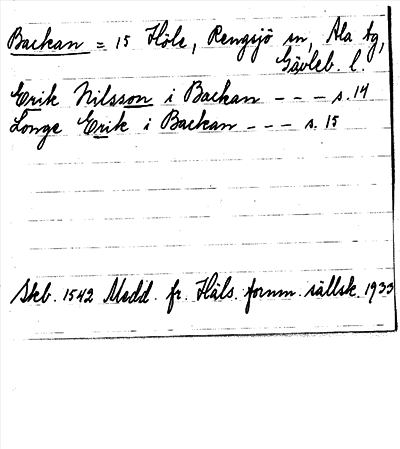 Backan = 15 Höle, Rengsjö sn, Ala tg,
Gävleb. l.
Erik Nilsson i Backan - - - s. 14
Longe Erik i Backan - - - s. 15
Skb. 1542 Medd. fr. Häls. fornm. sällsk. 1933